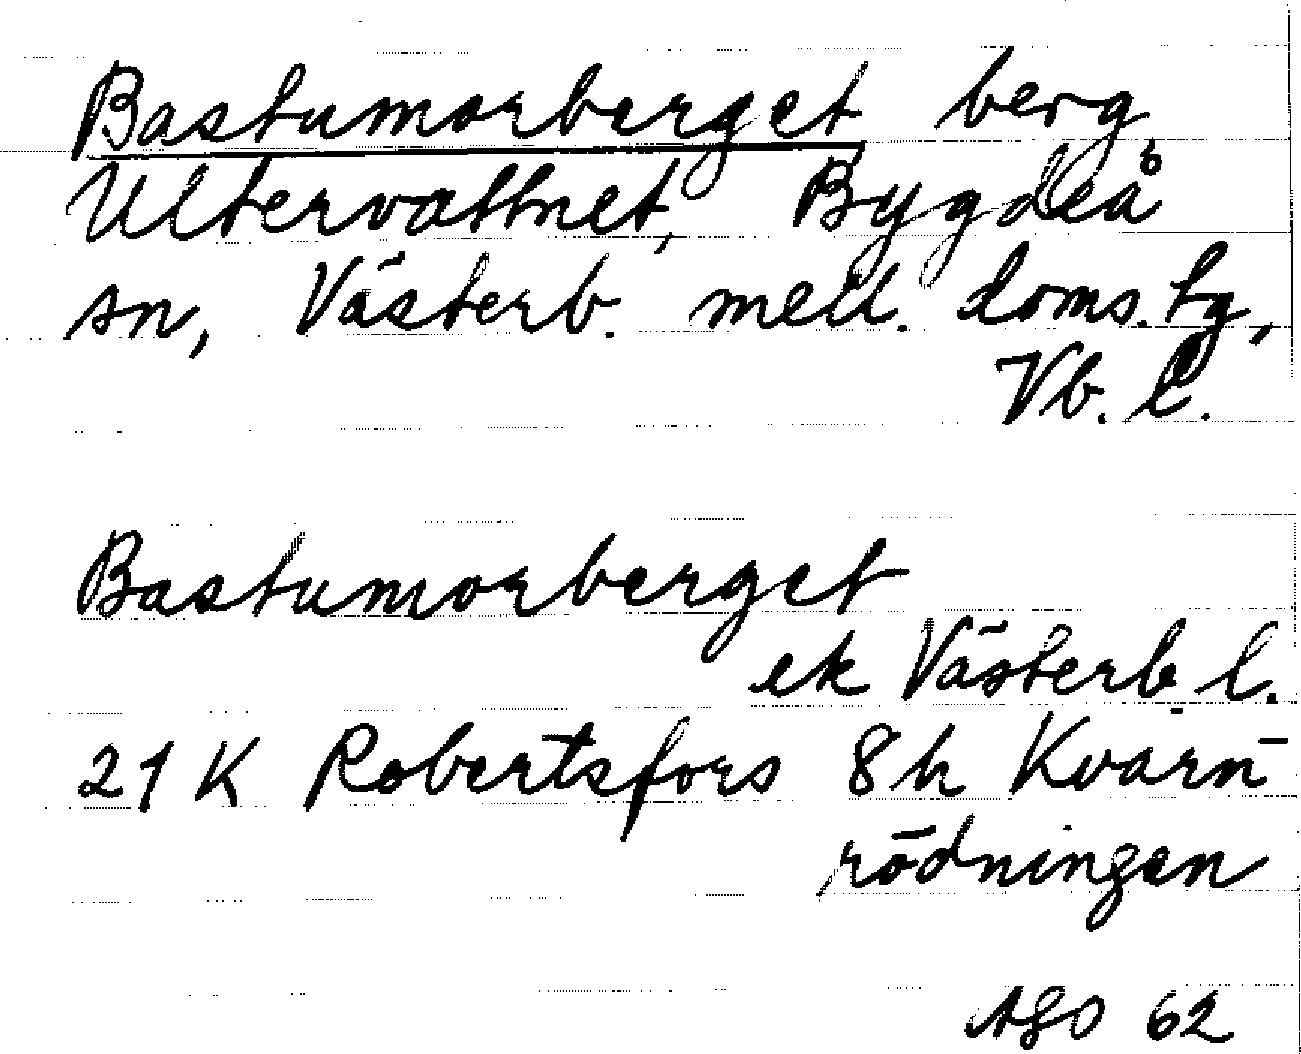 Bastumorberget berg,
Ultervattnet, Bygdeå
sn, Västerb. mell. doms. tg,
Vb. l.
Bastumorberget
ek Västerb. l.
21 K Robertsfors 8h Kvarn-
rödningen
AGO 62